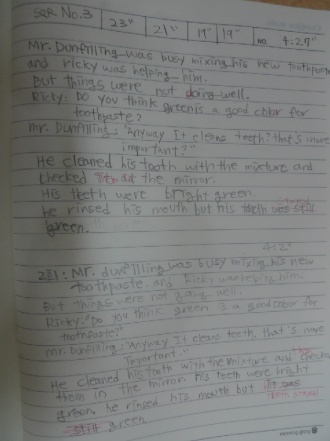 SQR No.3 23" 21" 19" 19" 4:27"
Mr. Dunfilling was busy mixing his new toothpaste
and ricky was helping him.
But things were not doing well.
Ricky: Do you think green is a good color for
toothpaste?
mr. Dunfilling: "Anyway It cleans teeth? that's more
important?"
He cleaned his tooth with the mixture and
checked at the mirror.
His teeth were bright green.
he rinsed his mouth but his teeth was still
green.
4:2"
Mr. dunfilling was busy mixing his new
toothpaste. and Ricky was helping him.
But things were not going well.
Ricky: "Do you think green is a good color for
toothpaste?"
mr. Dunfilling: "Anyway It cleans teeth, that's more
important."
He cleaned his tooth with the mixture and
them in the mirror. his teeth were bright
green, he rinsed his mouth but
still green